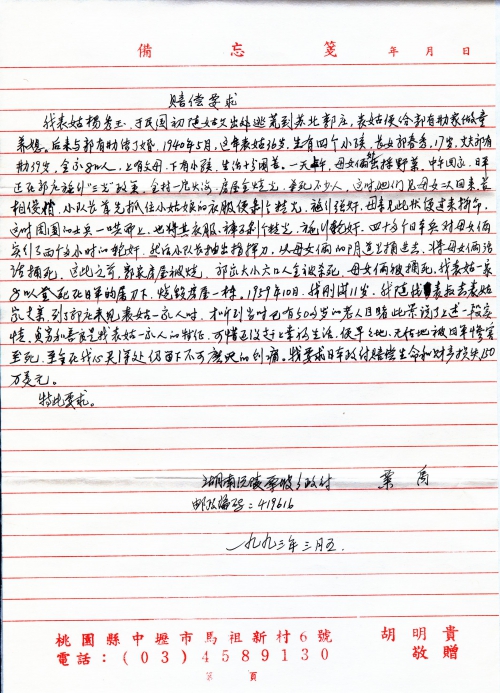 備 忘 箋 年 月 日
赔偿要求
我表姑杨冬玉，于民国初随姑父出外逃荒到苏北郭庄，表姑便给郭有勋家做童
养媳。后来与郭有勋结了婚，1940年5月，这年表姑36岁，生有四个小孩，长女郭春秀，17岁，丈夫郭有
勋39岁，全家8口人，上有父母，下有小孩，生活十分困苦。一天，母女俩去挖野菜，中午回家，日军
正在郭庄施行"三光"政策，全村一片火海，房屋全烧光，杀死不少人，这时她们见母女二人回来，
相俊，小队长首先抓住小姑娘的衣服便剥个精光，施行强奸，母亲见此状便过来
这时周围的士兵一哄而上，也将其衣服、裤子剥个精光，施以轮奸，四十多个日军兵对母女俩
实行了两个多小时的轮奸，然后小队长抽出指挥刀，从母女俩的阴道里捅进去，将母女俩活
活捅死。这此之前，郭家房屋被烧，郭家大小六口人全被杀死，母女俩被捅死，我表姑一家
8口人全死在日军的屠刀下，烧毁房屋一栋。1959年10月，我刚满11岁，我随我表叔去表姑
到了郭庄未见表姑一家人时，才从到当时已有60多岁的老人目睹此景说了上述一段
情，贞劳和善良是我表姑一家人的特征，可惜还没过上幸福生活，便早早地、无估地被日军惨害
至死，至今在我心灵深处仍留下不可磨灭的创痛。我要求日本政付赔偿生命和财产损失150
万美元。
特此要求。
湖南沅陵栗坡乡政付 粟
邮政编码：419616
一九九三年三月五.
桃園縣中壢市馬祖新村6號 胡明貴
電話：(03)4589130 敬贈
第 頁